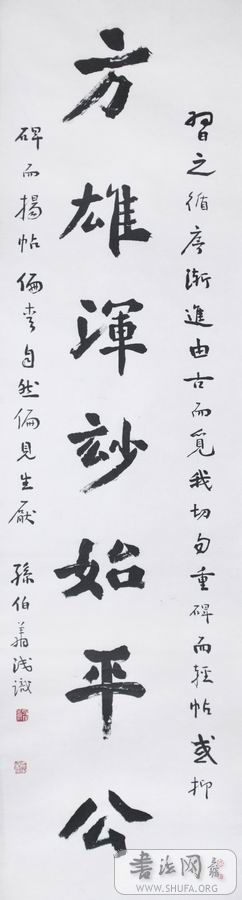 習之循序漸進由古而覓我切勿重碑而輕帖或抑
方雄渾玅始平公
碑而揚帖偏愛自然偏見生厭
孫伯翔淺識
書法网
WWW.SHUFA.ORG